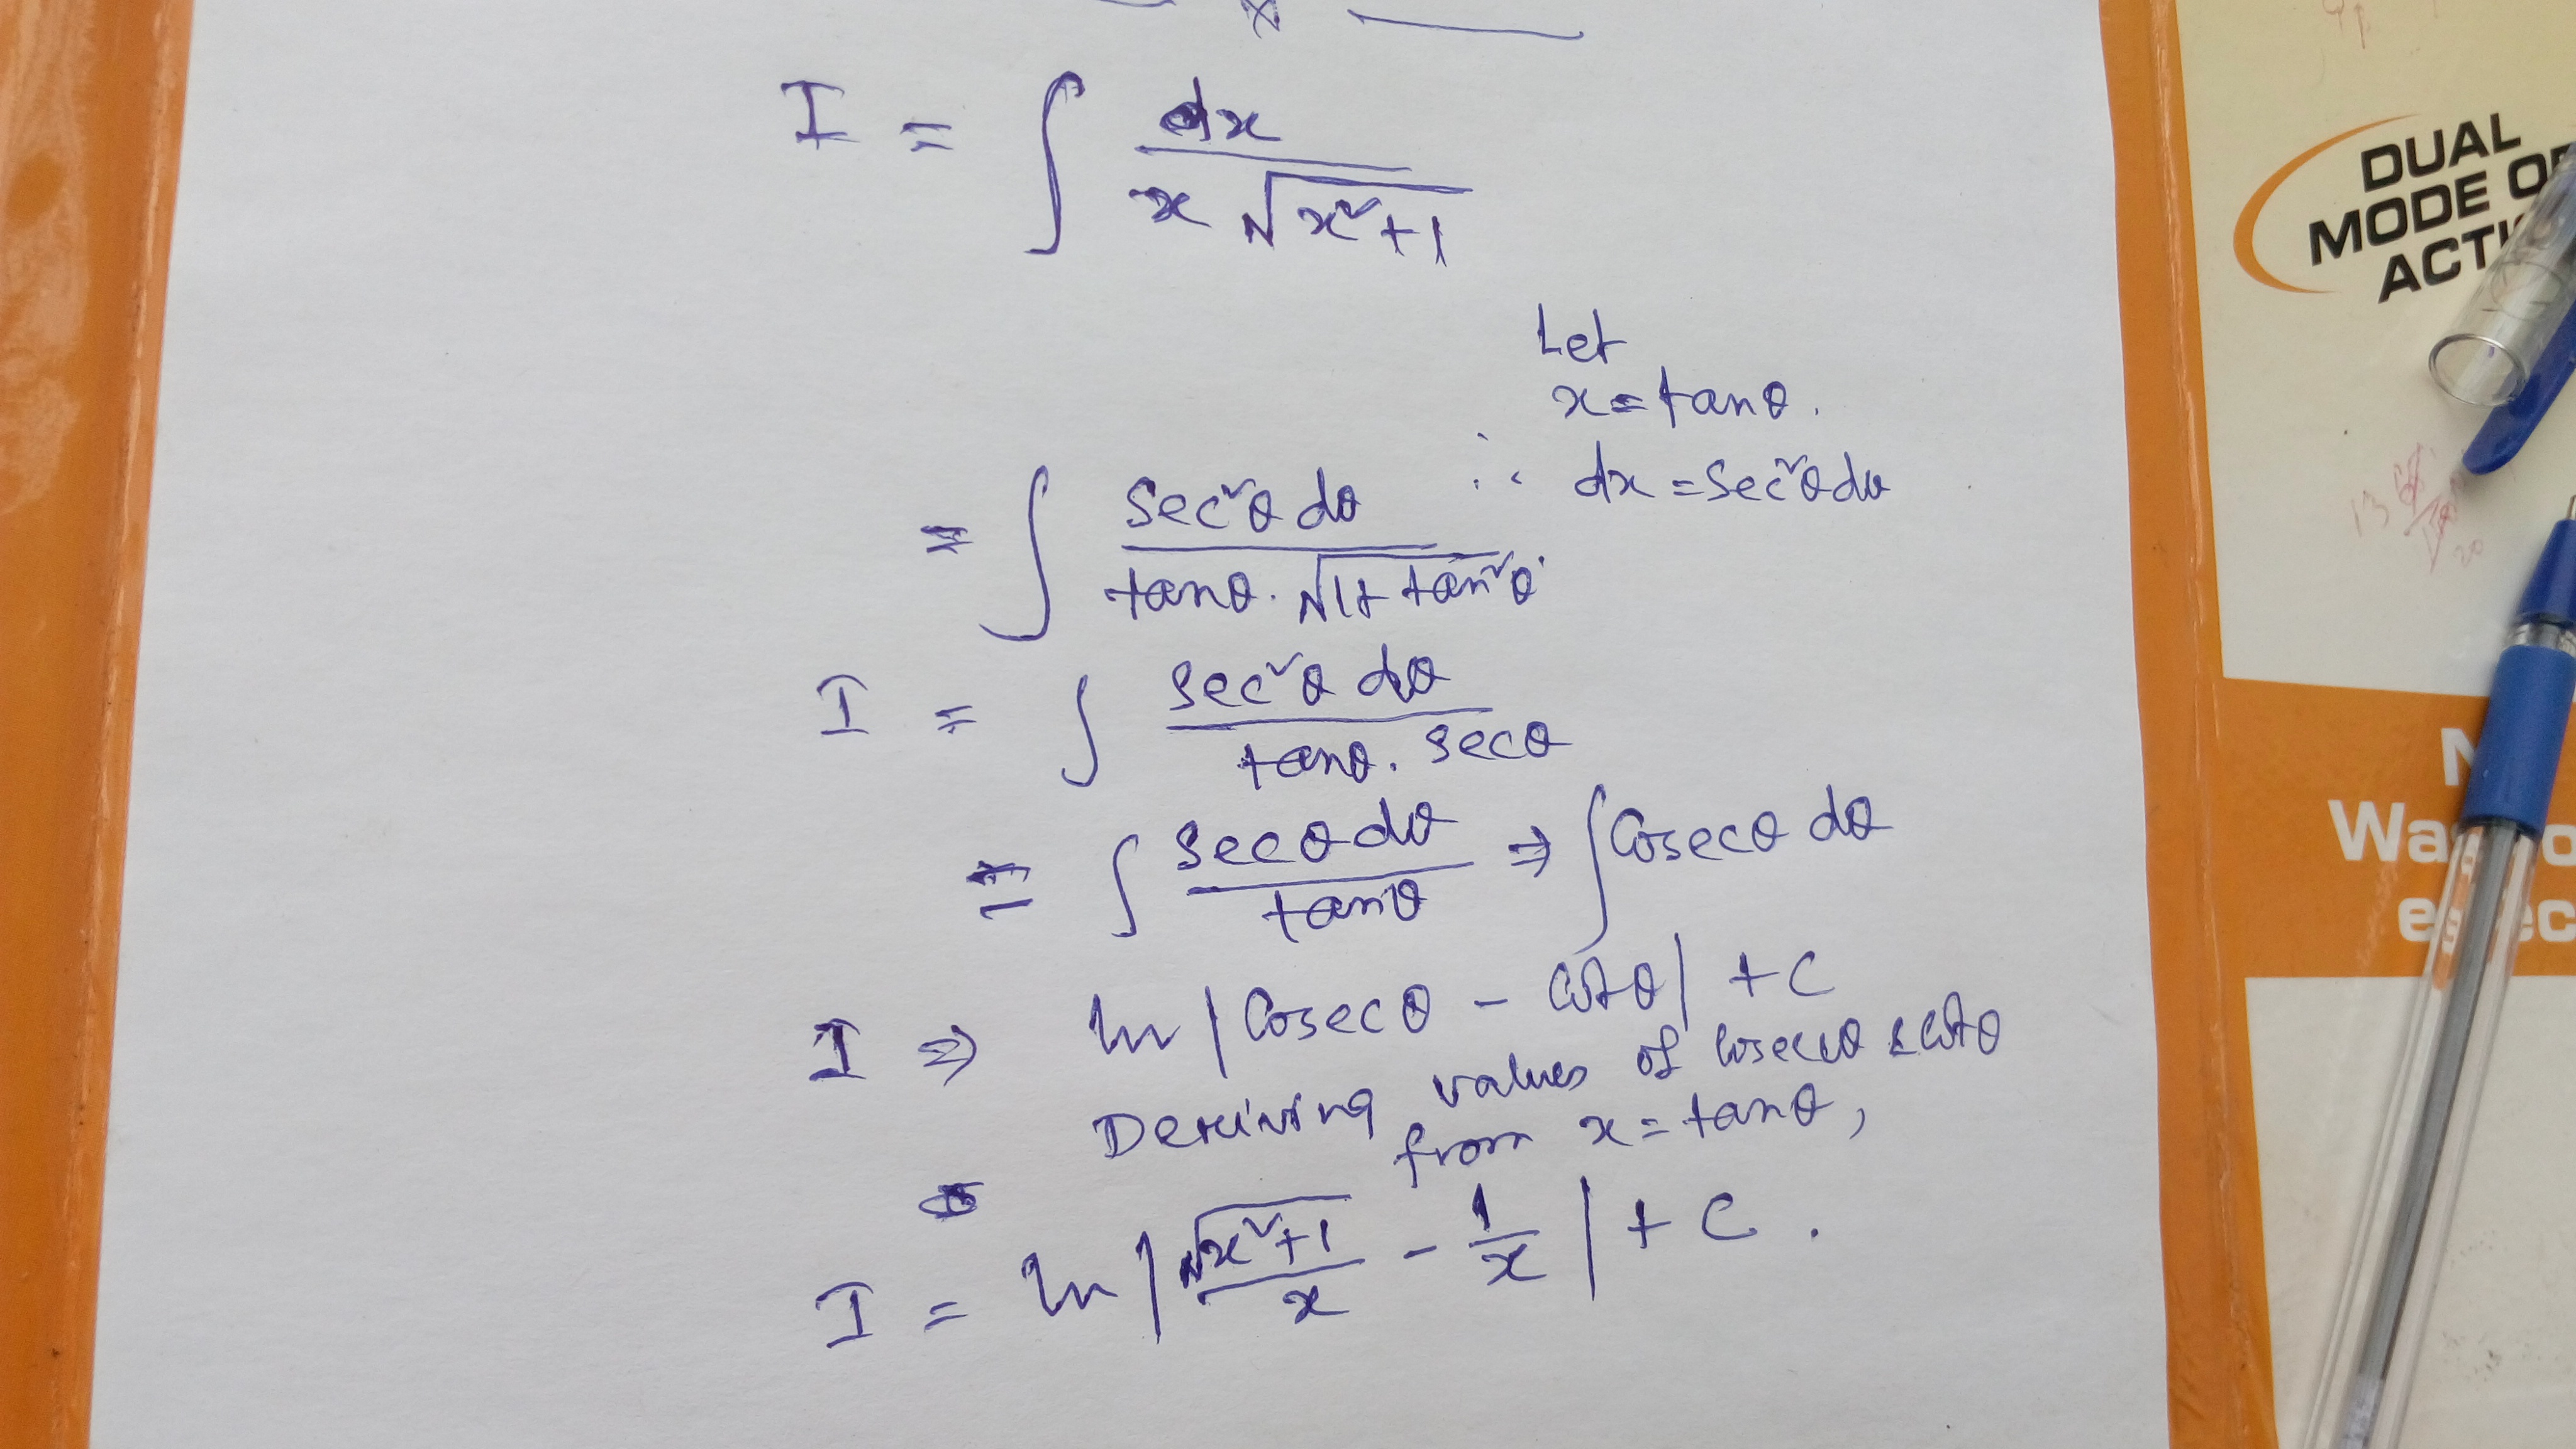 I = ∫ dx / x √x²+1
Let
x = tanθ.
∴ dx = sec²θ dθ
= ∫ sec²θ dθ / tanθ. √1+tan²θ
I = ∫ sec²θ dθ / tanθ. secθ
= ∫ secθ dθ / tanθ ⇒ ∫ Cosecθ dθ
I ⇒ ln |Cosecθ - Cotθ| + C
Deriving values of Cosecθ & Cotθ
from x = tanθ,
I = ln | √x²+1 / x - 1/x | + C.
DUAL
MODE
ACTI